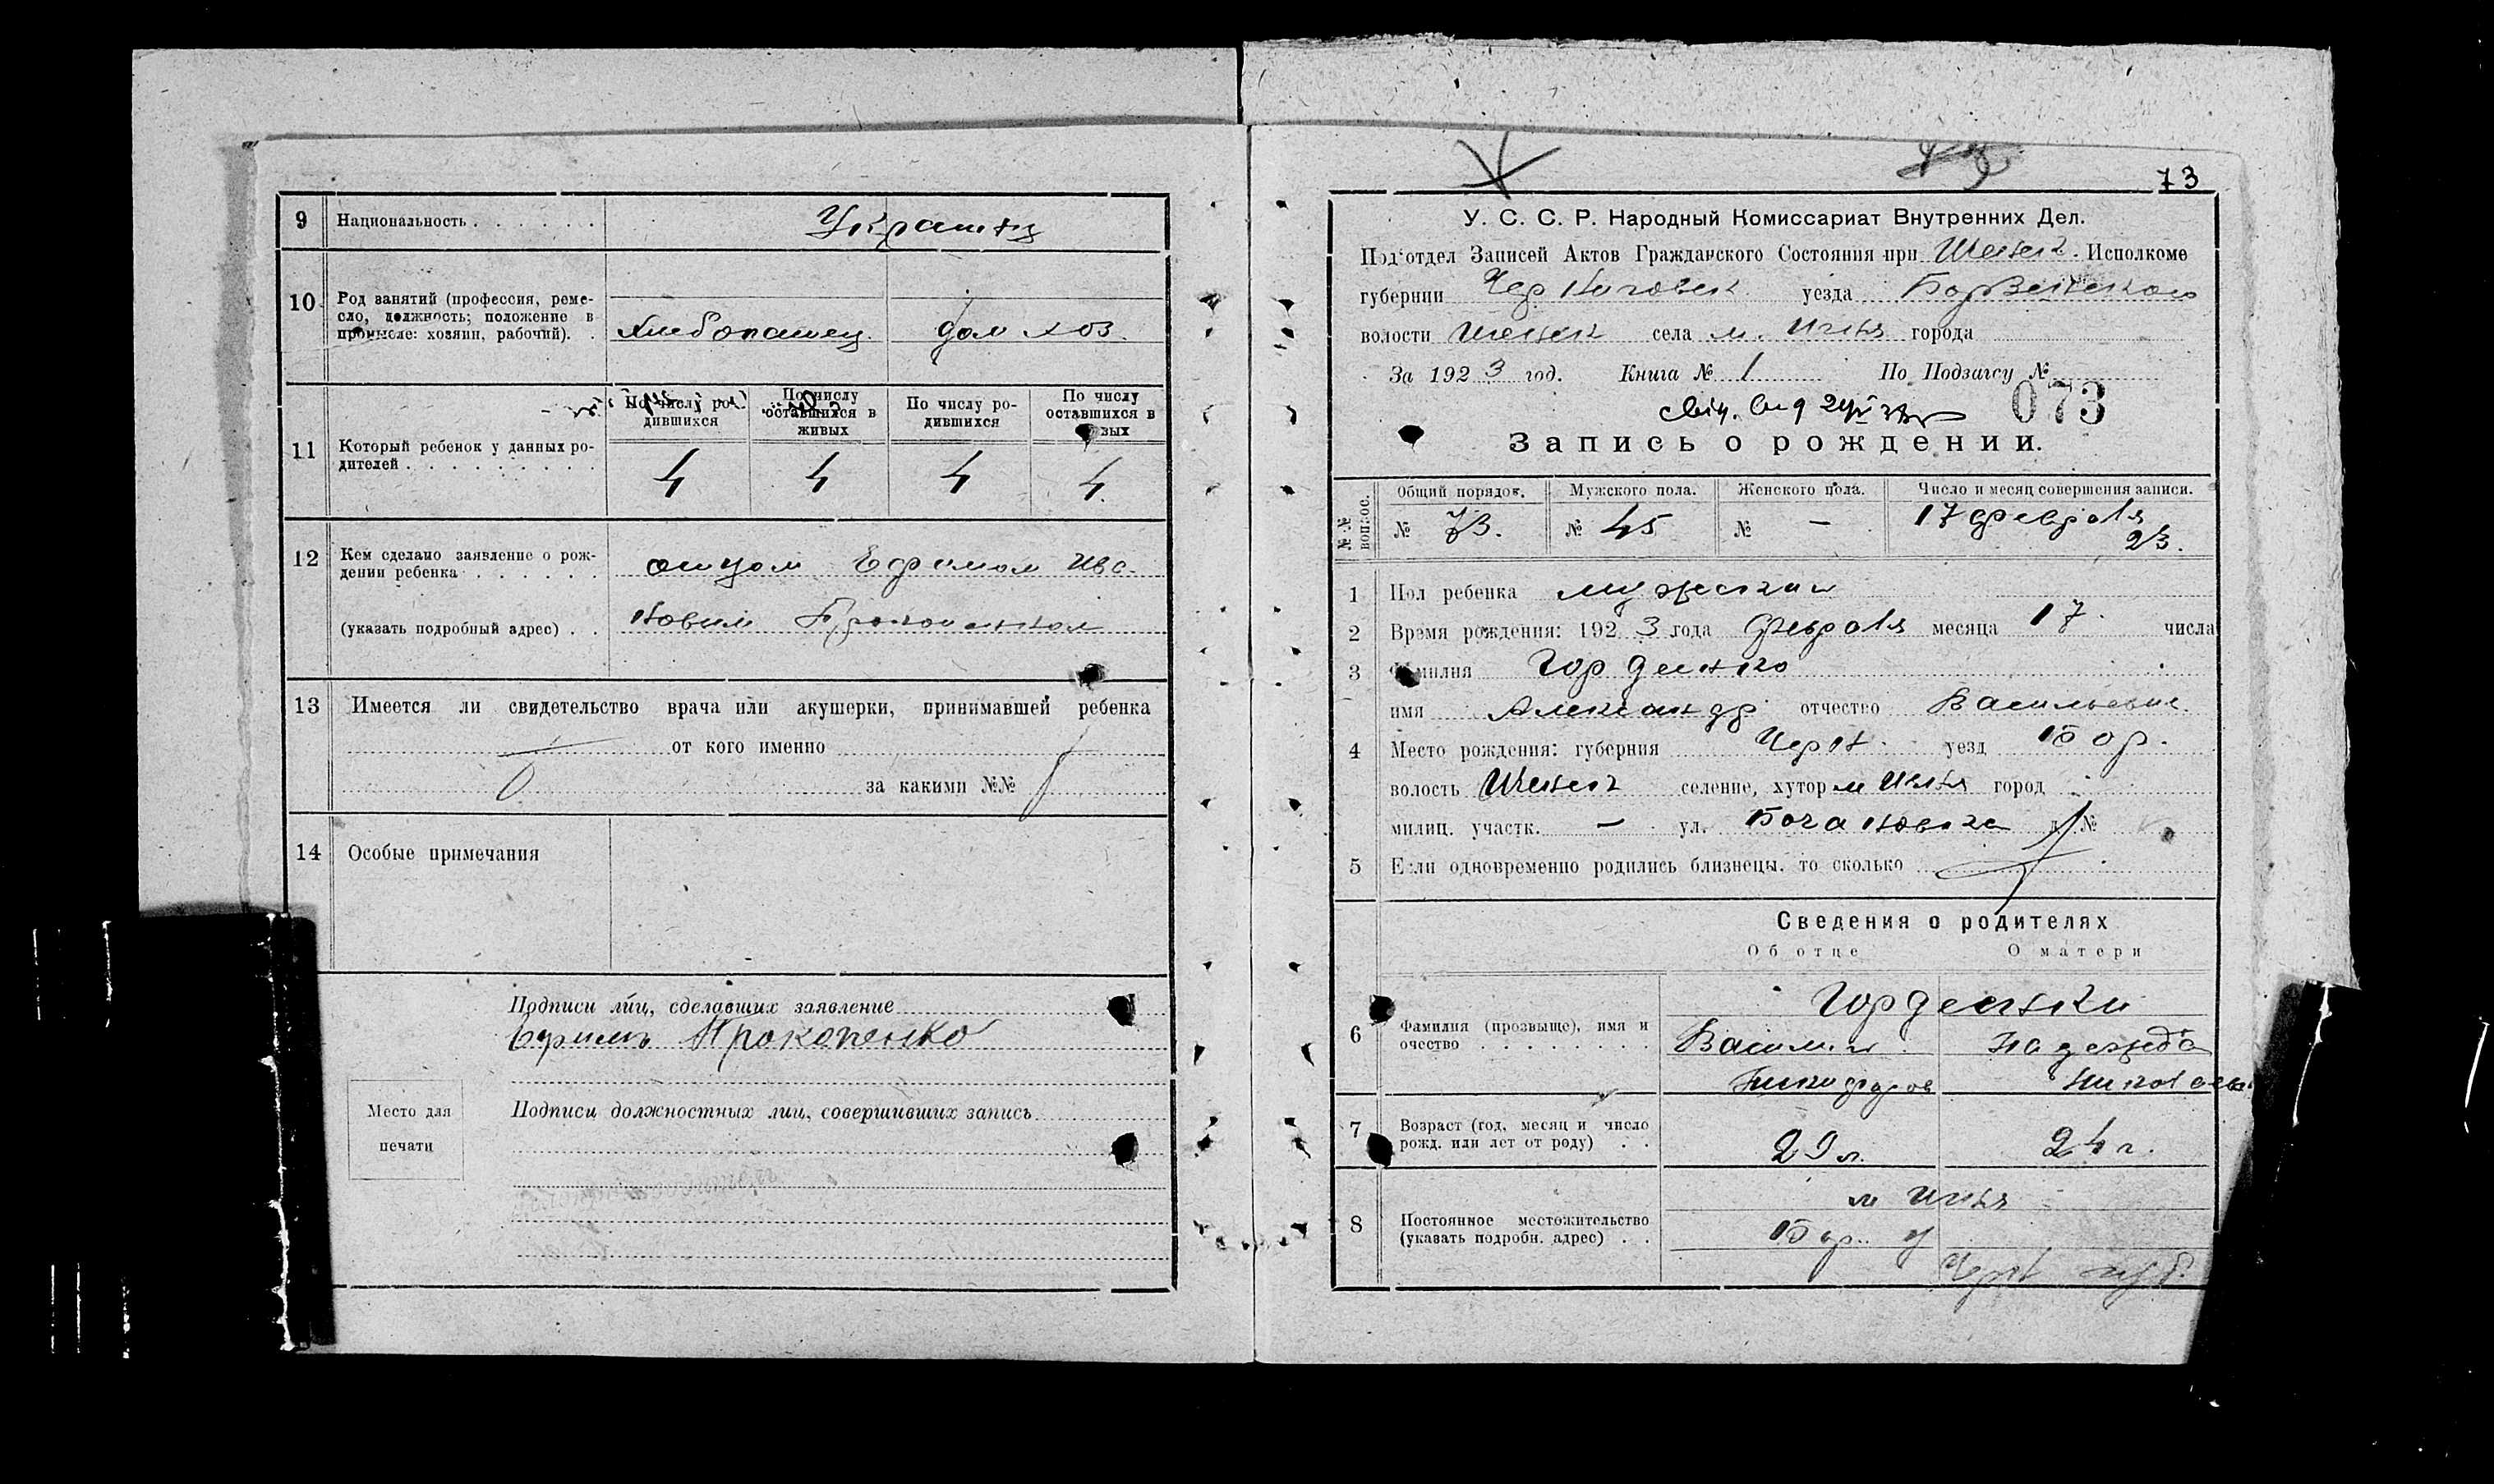 9 Национальность . . . . . . Украинц
10 Род занятий (профессия, реме-
сло, должность; положение в
промысле: хозяин, рабочий). . Хлебопашец. дом хоз.
По числу ро-
дившихся
По числу
оставшихся в
живых
По числу ро-
дившихся
По числу
оставшихся в
живых
11 Который ребенок у данных ро-
дителей . . . . . . . . . 4 4 4 4.
12 Кем сделано заявление о рож-
дении ребенка . . . . . . отцом Ефимом Ива-
(указать подробный адрес) . . новим Прокопенком
13 Имеется ли свидетельство врача или акушерки, принимавшей ребенка
от кого именно
за какими №№
14 Особые примечания
Подписи лиц, сделавших заявление
Ефимъ Прокопенко
Место для
печати
Подписи должностных лиц, совершивших запись
73
У. С. С. Р. Народный Комиссариат Внутренних Дел.
Подотдел Записей Актов Гражданского Состояния при Исполкоме
губернии Черниговск уезда Борзенского
волости села м. Ичня города
За 1923 год. Книга № 1 По Подзагсу №
073
Запись о рождении.
№№ вопрос.
Общий порядок. Мужского пола. Женского пола. Число и месяц совершения записи.
№ 73. № 45 № — 17 февраля
23.
1 Пол ребенка мужский
2 Время рождения: 1923 года февраля месяца 17 числа
3 Фамилия Горденко
имя Александр отчество Васильевич.
4 Место рождения: губерния Черн. уезд Бор.
волость селение, хутор м Ичня город
милиц. участк. — ул. д. №
5 Если одновременно родились близнецы, то сколько
Сведения о родителях
Об отце О матери
6 Фамилия (прозвище), имя и
очество . . . . . . . . Горденки
Василий Надежда
Никифоров Николаев
7 Возраст (год, месяц и число
рожд. или лет от роду) . . 29 л. 24 г.
8 Постоянное местожительство
(указать подробн. адрес) . . м Ичня
Бор. у
Черн губ.